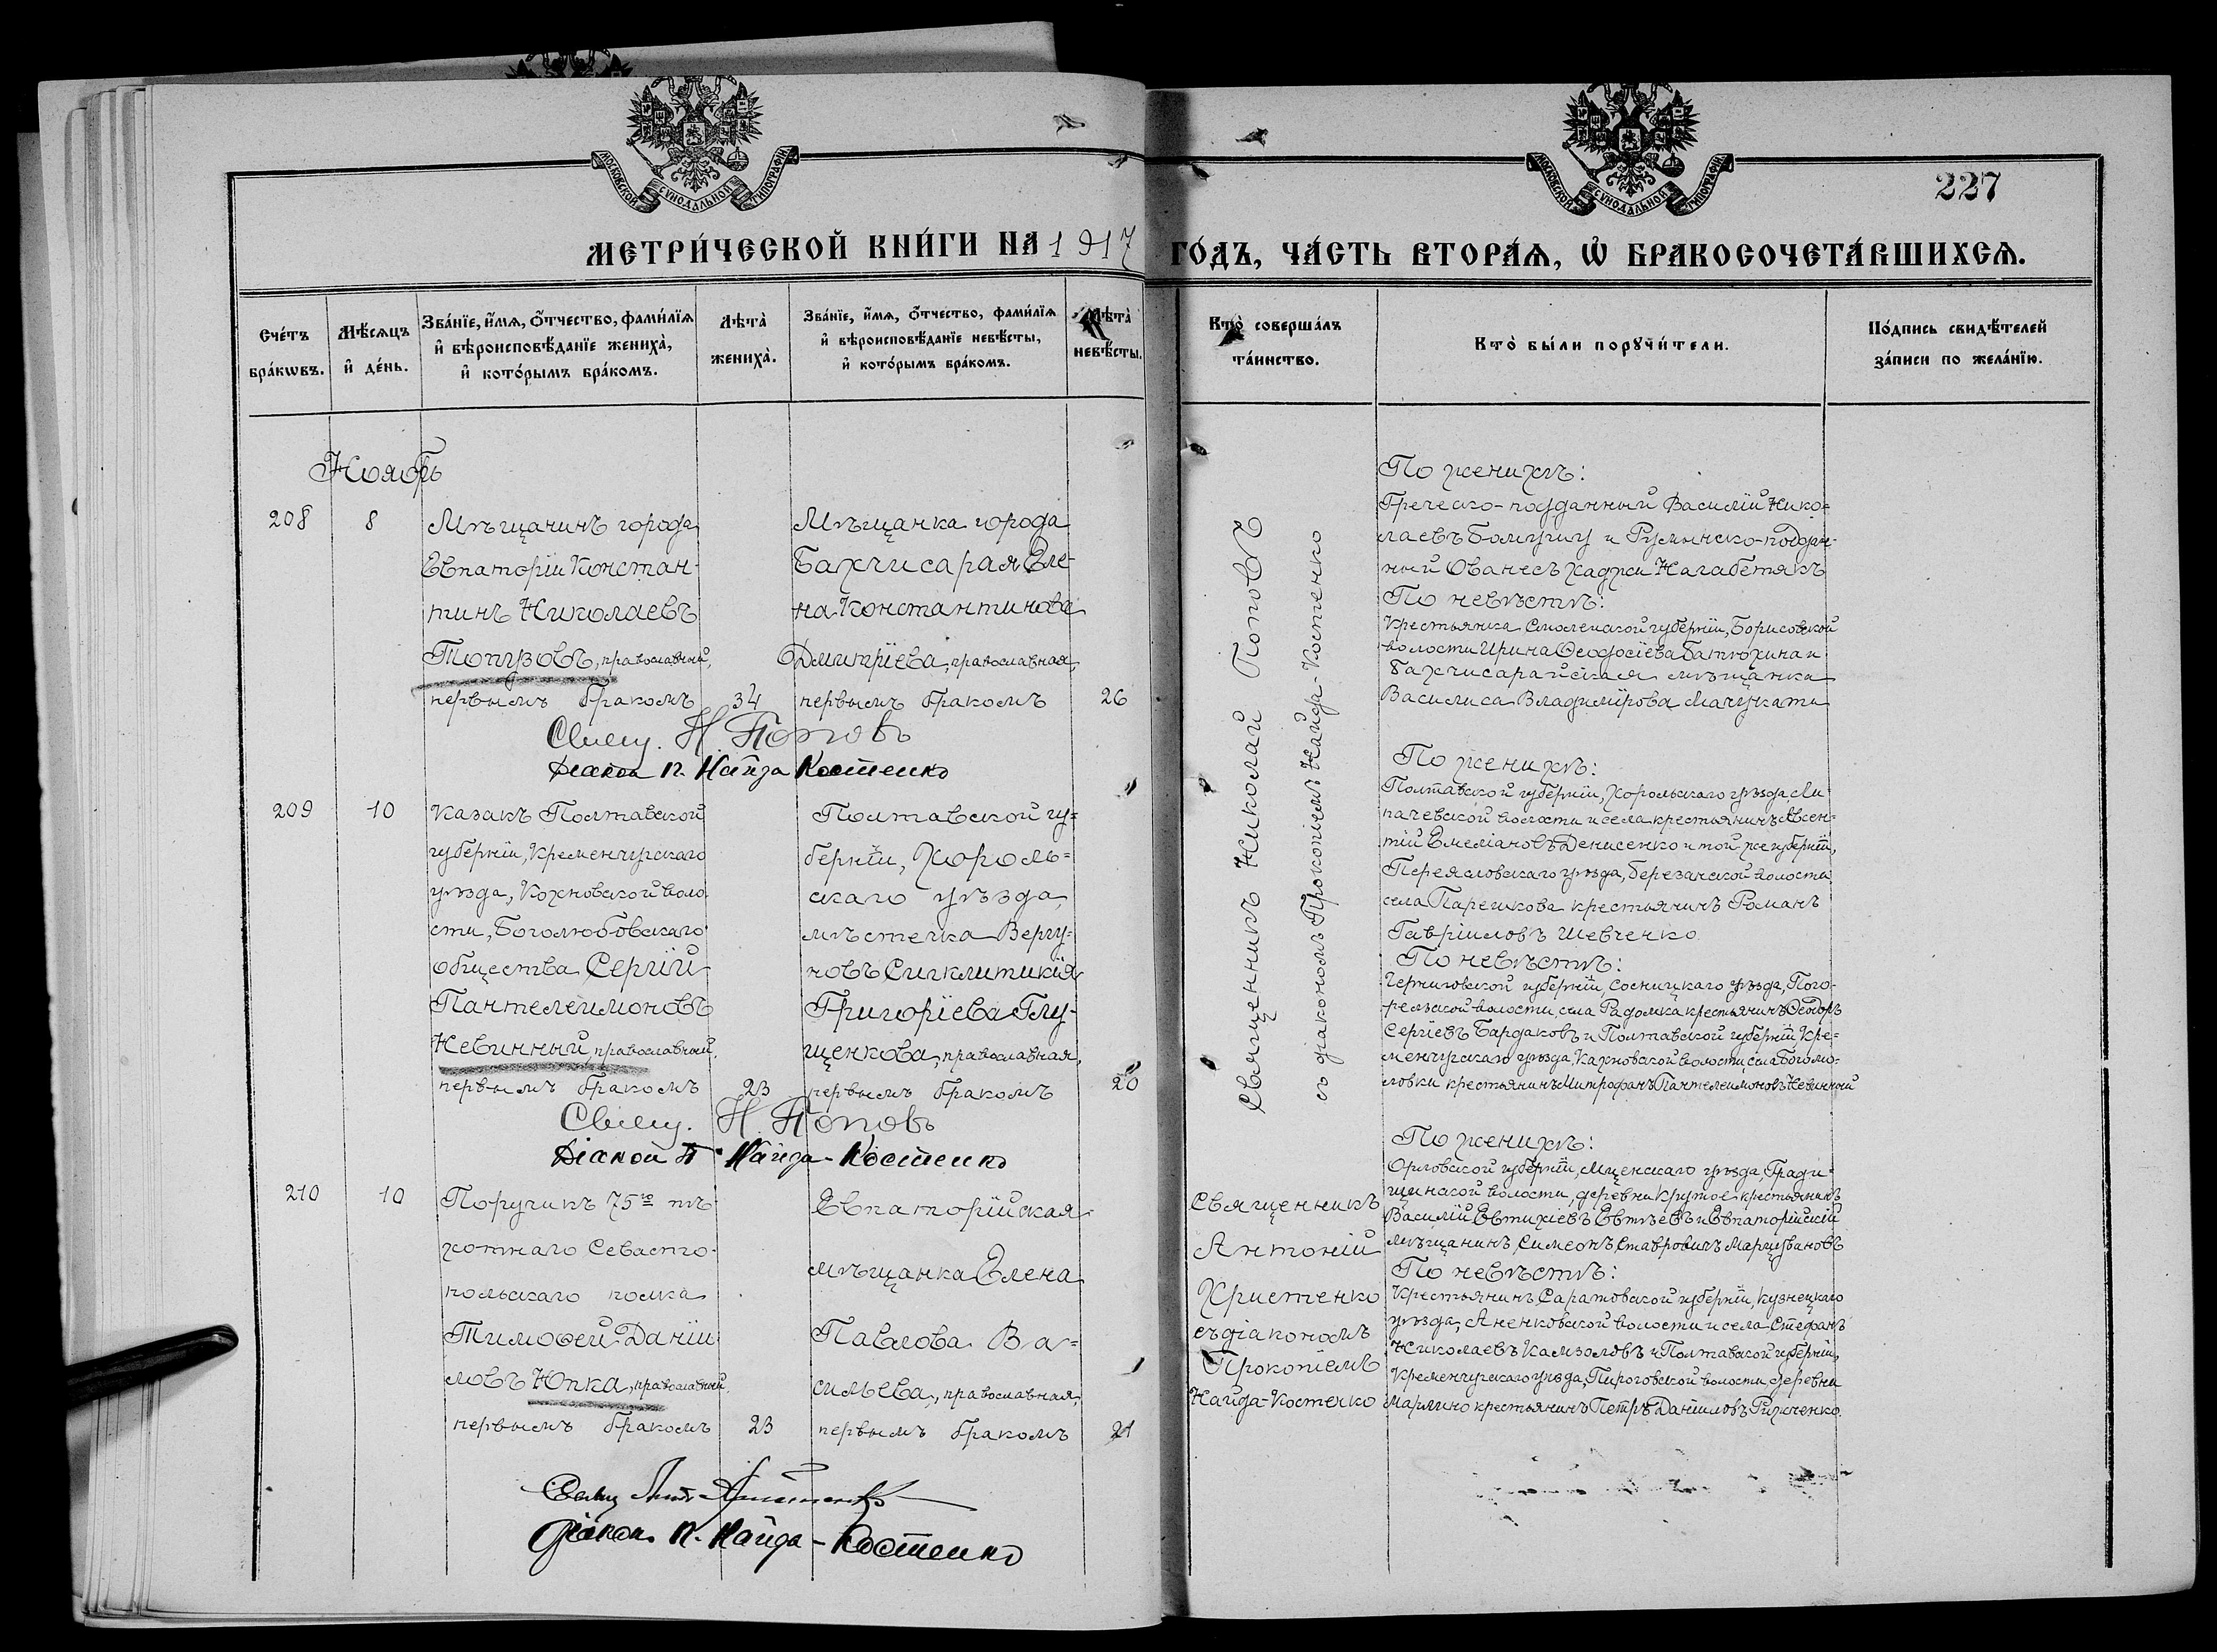 МОСКОВСКОЙ СѴНОДАЛЬНОЙ ТИПОГРАФІИ
МОСКОВСКОЙ СѴНОДАЛЬНОЙ ТИПОГРАФІИ
227
МЕТРИ́ЧЕСКОЙ КНИ́ГИ НА 1917 ГО́ДЪ, ЧА́СТЬ ВТОРА́Ѧ, Ѽ БРАКОСОЧЕТА́ВШИХСѦ.
Сче́тъ
бра́кѡвъ.
Мѣ́сѧцъ
и҆ де́нь.
Зва́нїе, и҆́мѧ, ѻ҆́тчество, фами́лїѧ
и҆ вѣроисповѣ́данїе жениха̀,
и҆ кото́рымъ бра́комъ.
Лѣта̀
жениха̀.
Зва́нїе, и҆́мѧ, ѻ҆́тчество, фами́лїѧ
и҆ вѣроисповѣ́данїе невѣ́сты,
и҆ кото́рымъ бра́комъ.
Лѣта̀
невѣ́сты.
Кто̀ соверша́лъ
та́инство.
Кто̀ бы́ли порꙋчи́тели.
По́дпись свидѣ́телей
за́писи по жела́нїю.
Ноябрь
208
8
Мѣщанинъ города
Евпаторіи Констан-
тинъ Николаевъ
Топузовъ, православный,
первымъ бракомъ
34
Мѣщанка города
Бахчисарая Еле-
на Константинова
Дмитріева, православная,
первымъ бракомъ
26
Свящ. Н. Поповъ
Діакон П. Найда Костенко
Священникъ Николай Поповъ
съ діакономъ Прокопіемъ Найда-Костенко
По женихѣ:
Греческо-подданный Василій Нико-
лаевъ и Румынско-поддан-
ный Ованесъ Хаджи Нагабетянъ
По невѣстѣ:
Крестьянка Смоленской губерніи, Борисовской
волости Ирина Ѳеодосіева Батюхина и
Бахчисарайская мѣщанка
Василиса Владимірова Мачукати
209
10
Казакъ Полтавской
губерніи, Кременчугскаго
уѣзда, Кохновской воло-
сти, Боголюбовскаго
общества Сергій
Пантелеимоновъ
Невинный, православный,
первымъ бракомъ
23
Полтавской гу-
берніи, Хороль-
скаго уѣзда,
мѣстечка Вергу-
новъ Сигклитикія
Григоріева Глу-
щенкова, православная,
первымъ бракомъ
20
Свящ. Н. Поповъ
Діакон П. Найда-Костенко
По женихѣ:
Полтавской губерніи, Хорольскаго уѣзда, Ли-
пачевской волости и села крестьянинъ Авсен-
тій Емеліановъ Денисенко и той же губерніи,
Переяславскаго уѣзда, Березанской волости
села Парешкова крестьянинъ Романъ
Гавріиловъ Шевченко
По невѣстѣ:
Черниговской губерніи, Сосницкаго уѣзда, Пого-
рельской волости, села Радомка крестьянинъ Ѳеодоръ
Сергіевъ Бардаковъ и Полтавской губерніи, Кре-
менчугскаго уѣзда, Кахновской волости, села Боголю-
бовки крестьянинъ Митрофанъ Пантелеимоновъ Невинный
210
10
Поручикъ 75го пѣ-
хотнаго Севасто-
польскаго полка
Тимоѳей Даніи-
ловъ Юпка, православный,
первымъ бракомъ
23
Евпаторійская
мѣщанка Елена
Павлова Ва-
сильева, православная,
первымъ бракомъ
21
Свящ Ант Христенко
Діакон П. Найда-Костенко
Священникъ
Антоній
Христенко
съ діакономъ
Прокопіемъ
Найда-Костенко
По женихѣ:
Орловской губерніи, Мценскаго уѣзда, Гради-
щинской волости, деревни Крутое крестьянинъ
Василій Евтихіевъ Евтѣевъ и Евпаторійскій
мѣщанинъ Симеонъ Ставровичъ Марцувановъ
По невѣстѣ:
Крестьянинъ Саратовской губерніи, Кузнецкаго
уѣзда, Аненковской волости и села Стефанъ
Николаевъ Камзоловъ и Полтавской губерніи,
Кременчугскаго уѣзда, Пироговской волости, деревни
Марлино крестьянинъ Петръ Даніиловъ Рижченко.